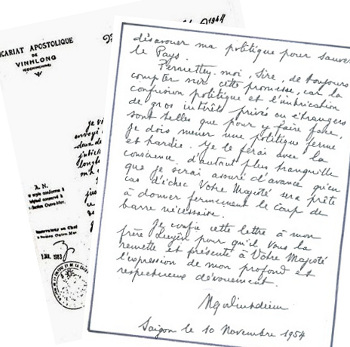 CARIAT APOSTOLIQUE
DE
VINHLONG
1949
A.N.
désavouer ma politique pour sauver
le Pays.
Permettez, moi, Sire, de toujours
compter sur cette promesse, car la
confusion politique et l'imbrication
de gros intérêts privés ou étrangers
sont telles que pour y faire face,
je dois mener une politique ferme
et hardie. Je le ferai avec la
conscience d'autant plus tranquille
que je serai assuré d'avance qu'en
cas d'échec Votre Majesté sera prête
à donner fermement le coup de
barre nécessaire.
Je confie cette lettre à mon
frère Luyện pour qu'il Vous la
remette et présente à Votre Majesté
l'expression de mon profond et
respectueux dévouement.
Ngodinhdiem
Saigon le 10 Novembre 1954